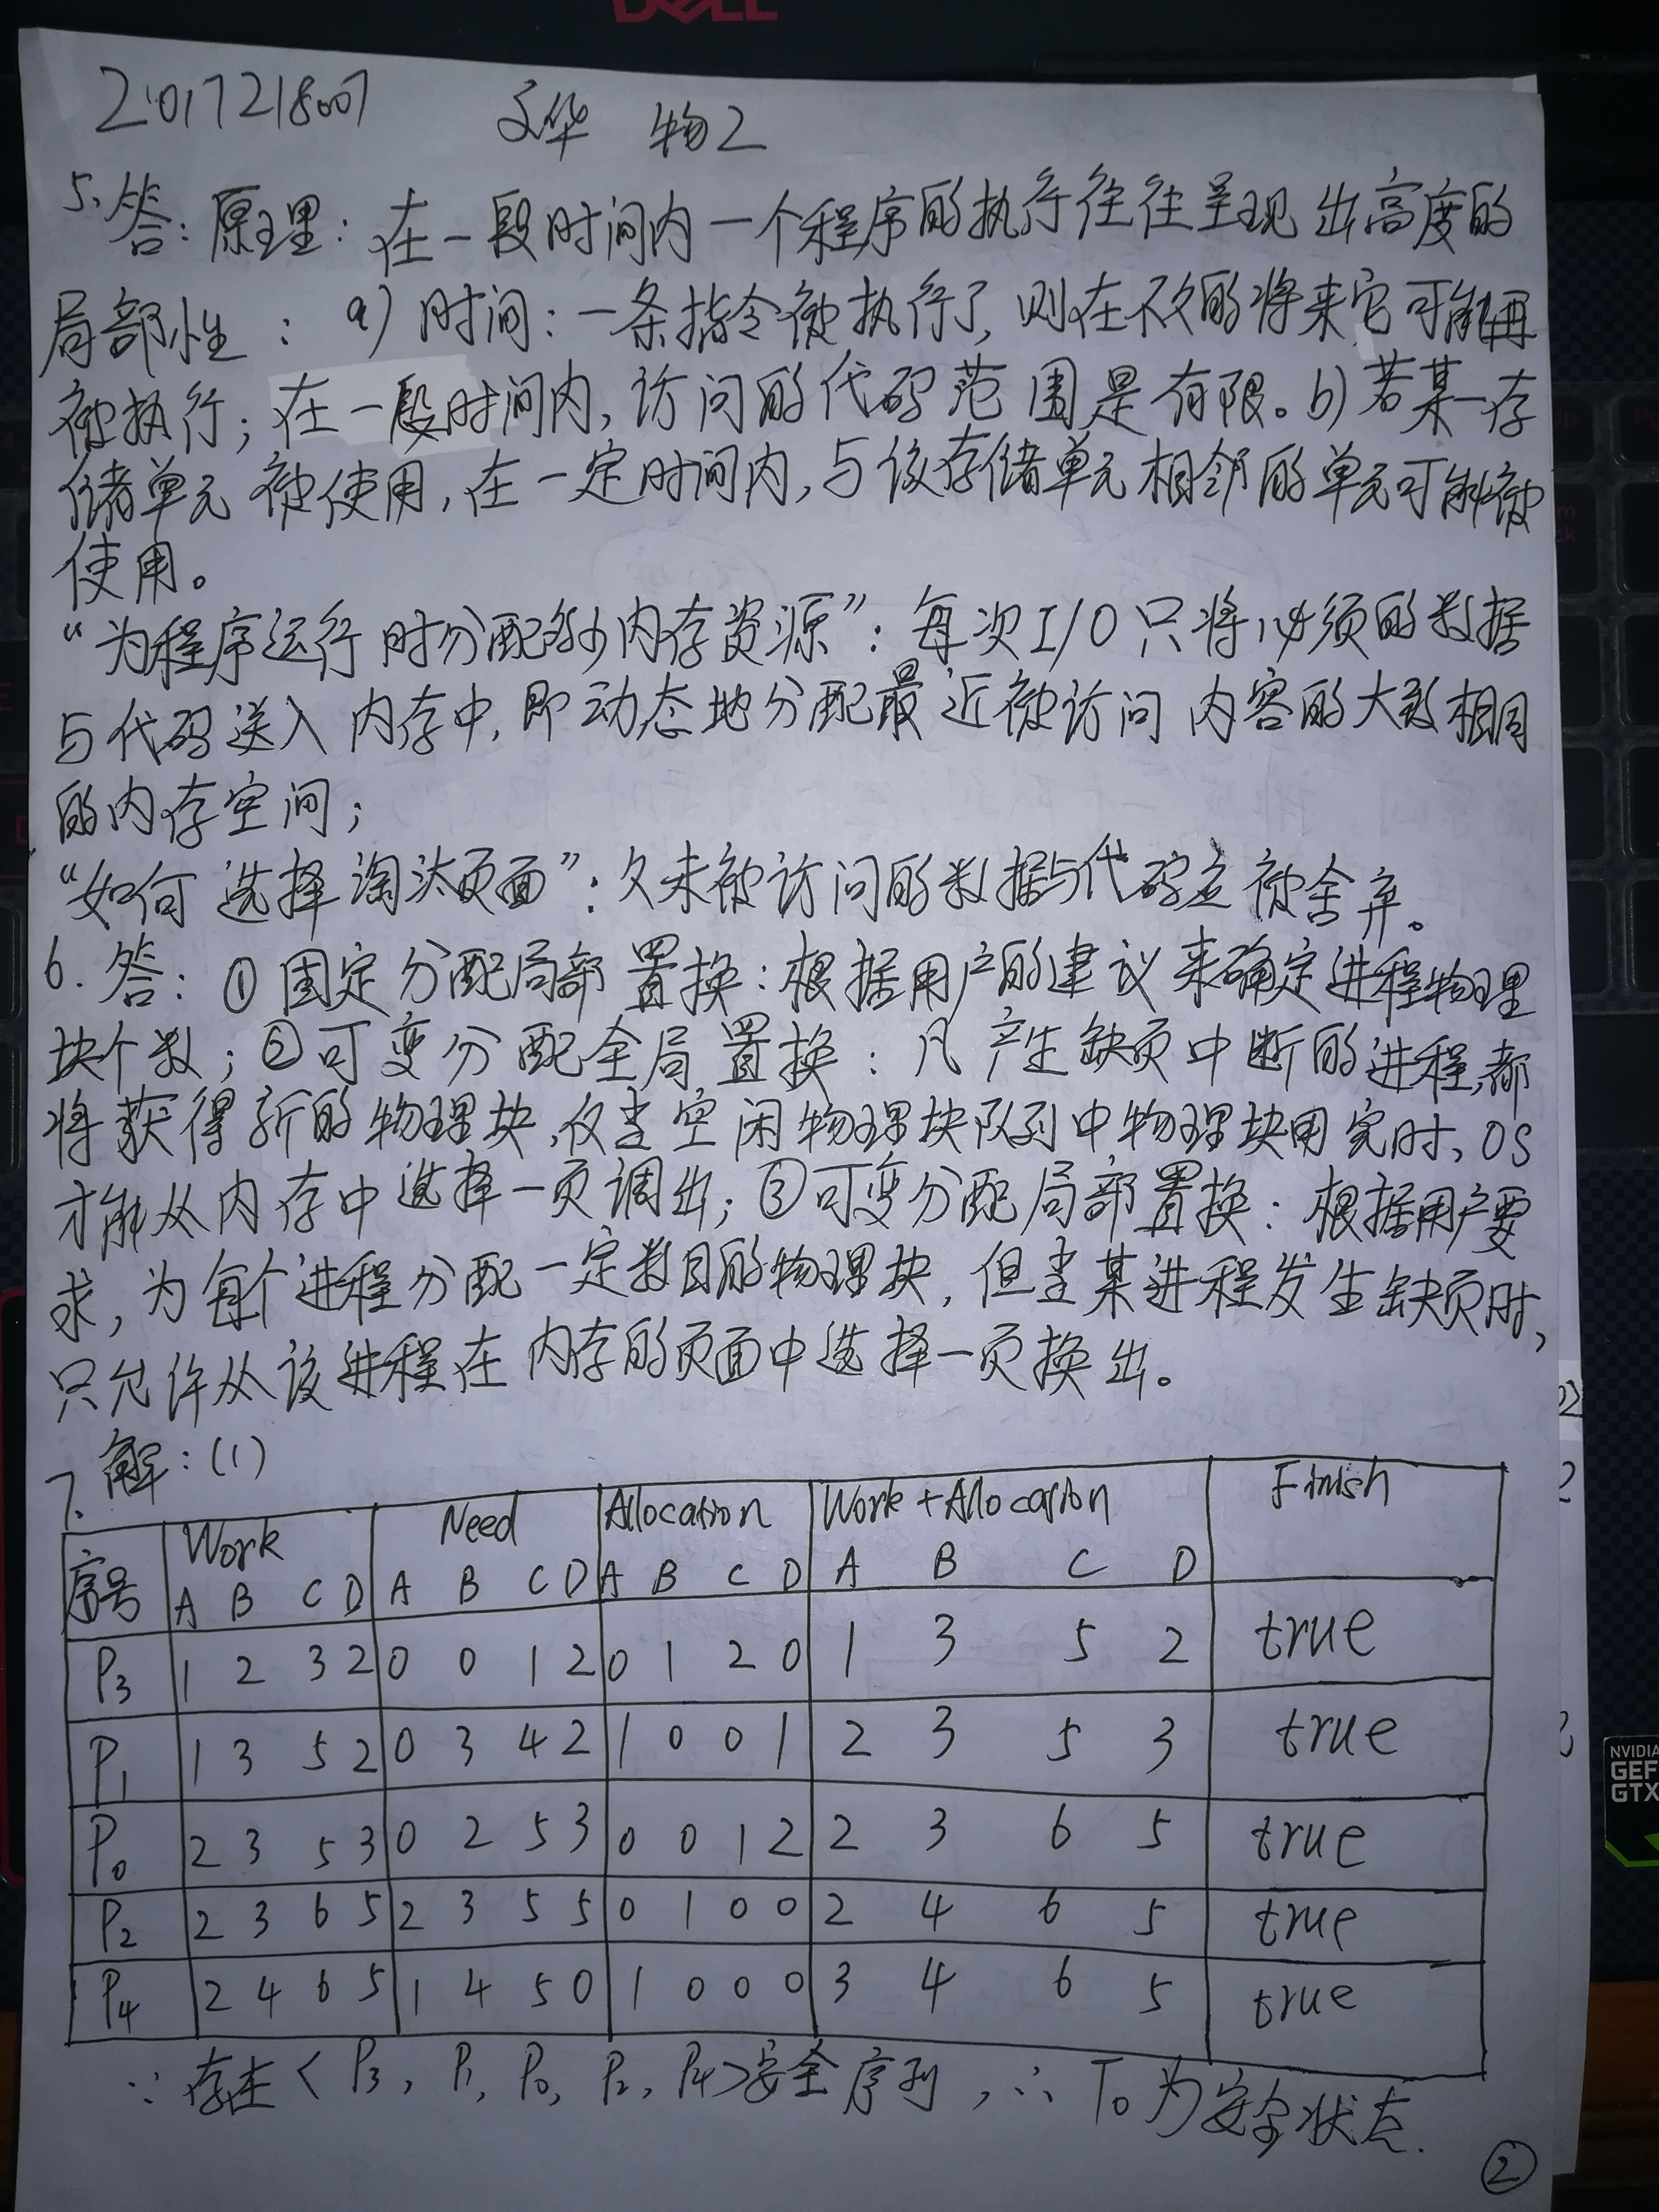 DELL
201721807 文华 物2
5. 答：原理：在一段时间内一个程序的执行往往呈现出高度的
局部性：a) 时间：一条指令被执行了，则在不久的将来它可能再
被执行；在一段时间内，访问的代码范围是有限。b) 若某一存
储单元被使用，在一定时间内，与该存储单元相邻的单元可能被
使用。
“为程序运行时分配多少内存资源”：每次I/O只将必须的数据
与代码送入内存中，即动态地分配最近被访问内容的大致相同
的内存空间；
“如何选择淘汰页面”：久未被访问的数据与代码应被舍弃。
6. 答：①固定分配局部置换：根据用户的建议来确定进程物理
块个数；②可变分配全局置换：凡产生缺页中断的进程，都
将获得新的物理块，仅当空闲物理块队列中物理块用完时，OS
才能从内存中选择一页调出；③可变分配局部置换：根据用户要
求，为每个进程分配一定数目的物理块，但当某进程发生缺页时，
只允许从该进程在内存的页面中选择一页换出。
7. 解：(1)
序号 Work Need Allocation Work+Allocation Finish
A B C D A B C D A B C D A B C D
P3 1 2 3 2 0 0 1 2 0 1 2 0 1 3 5 2 true
P1 1 3 5 2 0 3 4 2 1 0 0 1 2 3 5 3 true
P0 2 3 5 3 0 2 5 3 0 0 1 2 2 3 6 5 true
P2 2 3 6 5 2 3 5 5 0 1 0 0 2 4 6 5 true
P4 2 4 6 5 1 4 5 0 1 0 0 0 3 4 6 5 true
∵存在<P3, P1, P0, P2, P4>安全序列，∴T0为安全状态.
②
NVIDIA
GEF
GTX